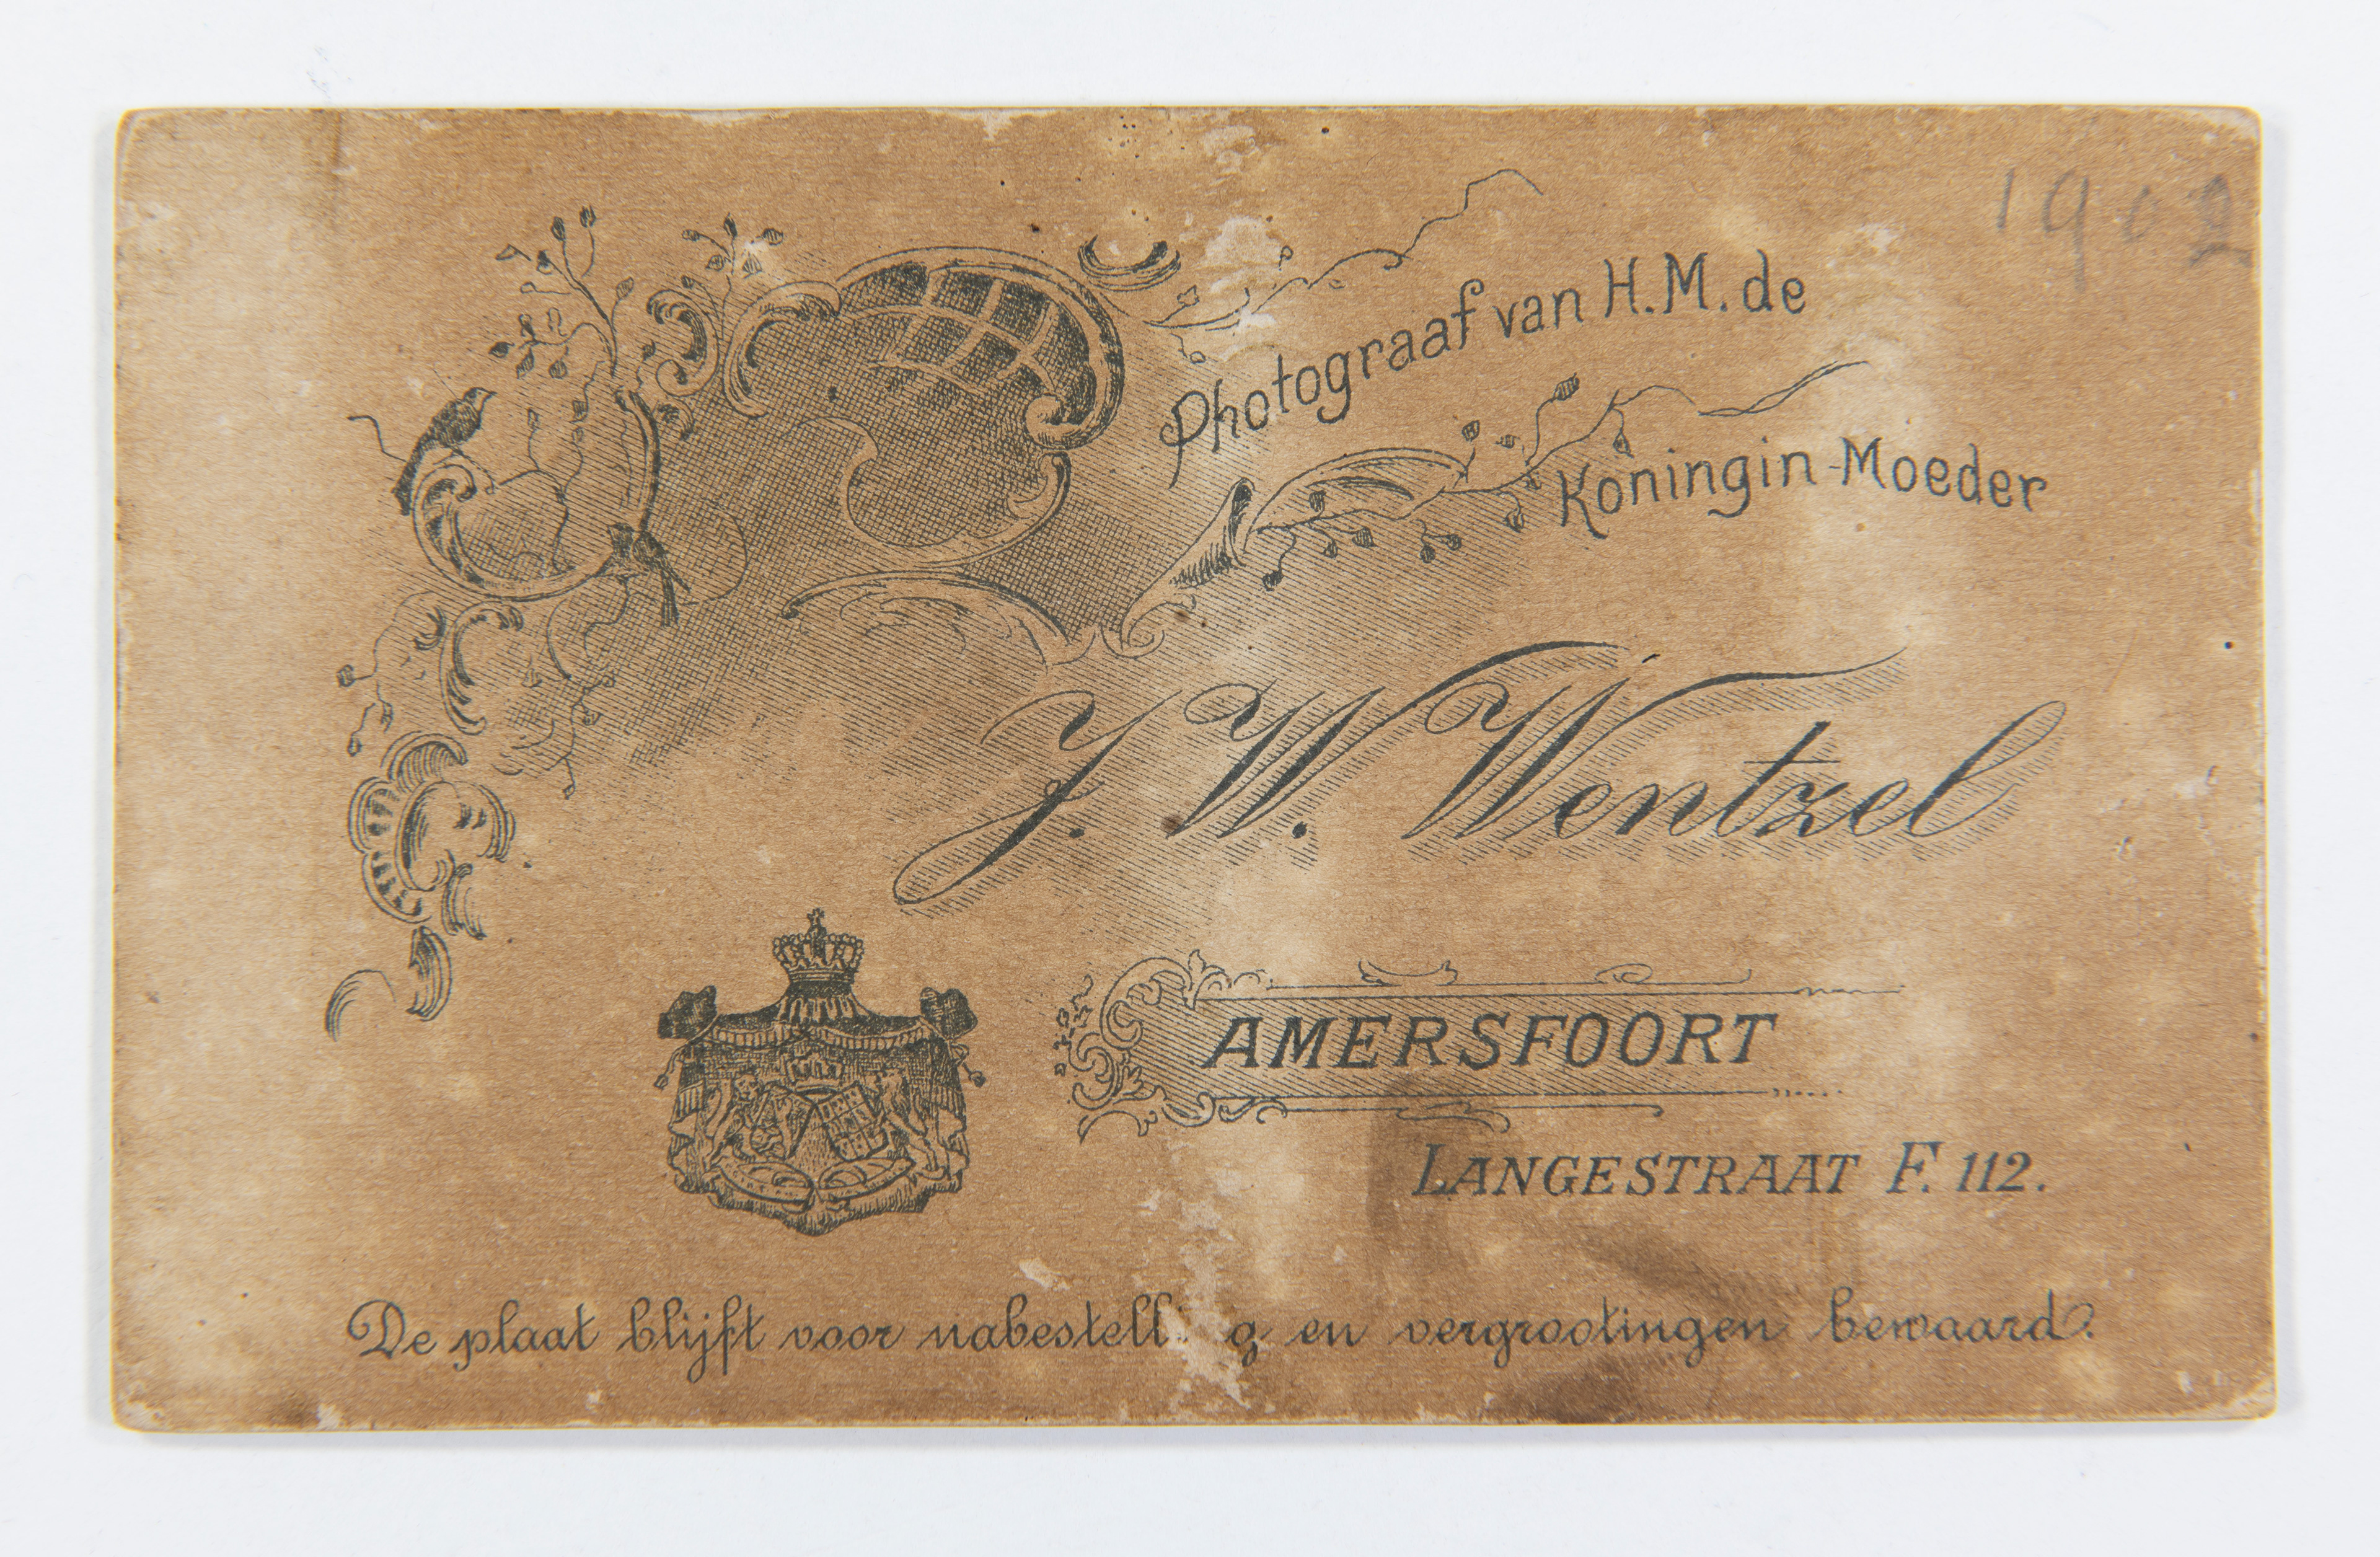 1902
Photograaf van H.M. de
Koningin-Moeder
J. W. Wentzel
AMERSFOORT
LANGESTRAAT F. 112.
De plaat blijft voor nabestell g en vergrootingen bewaard.